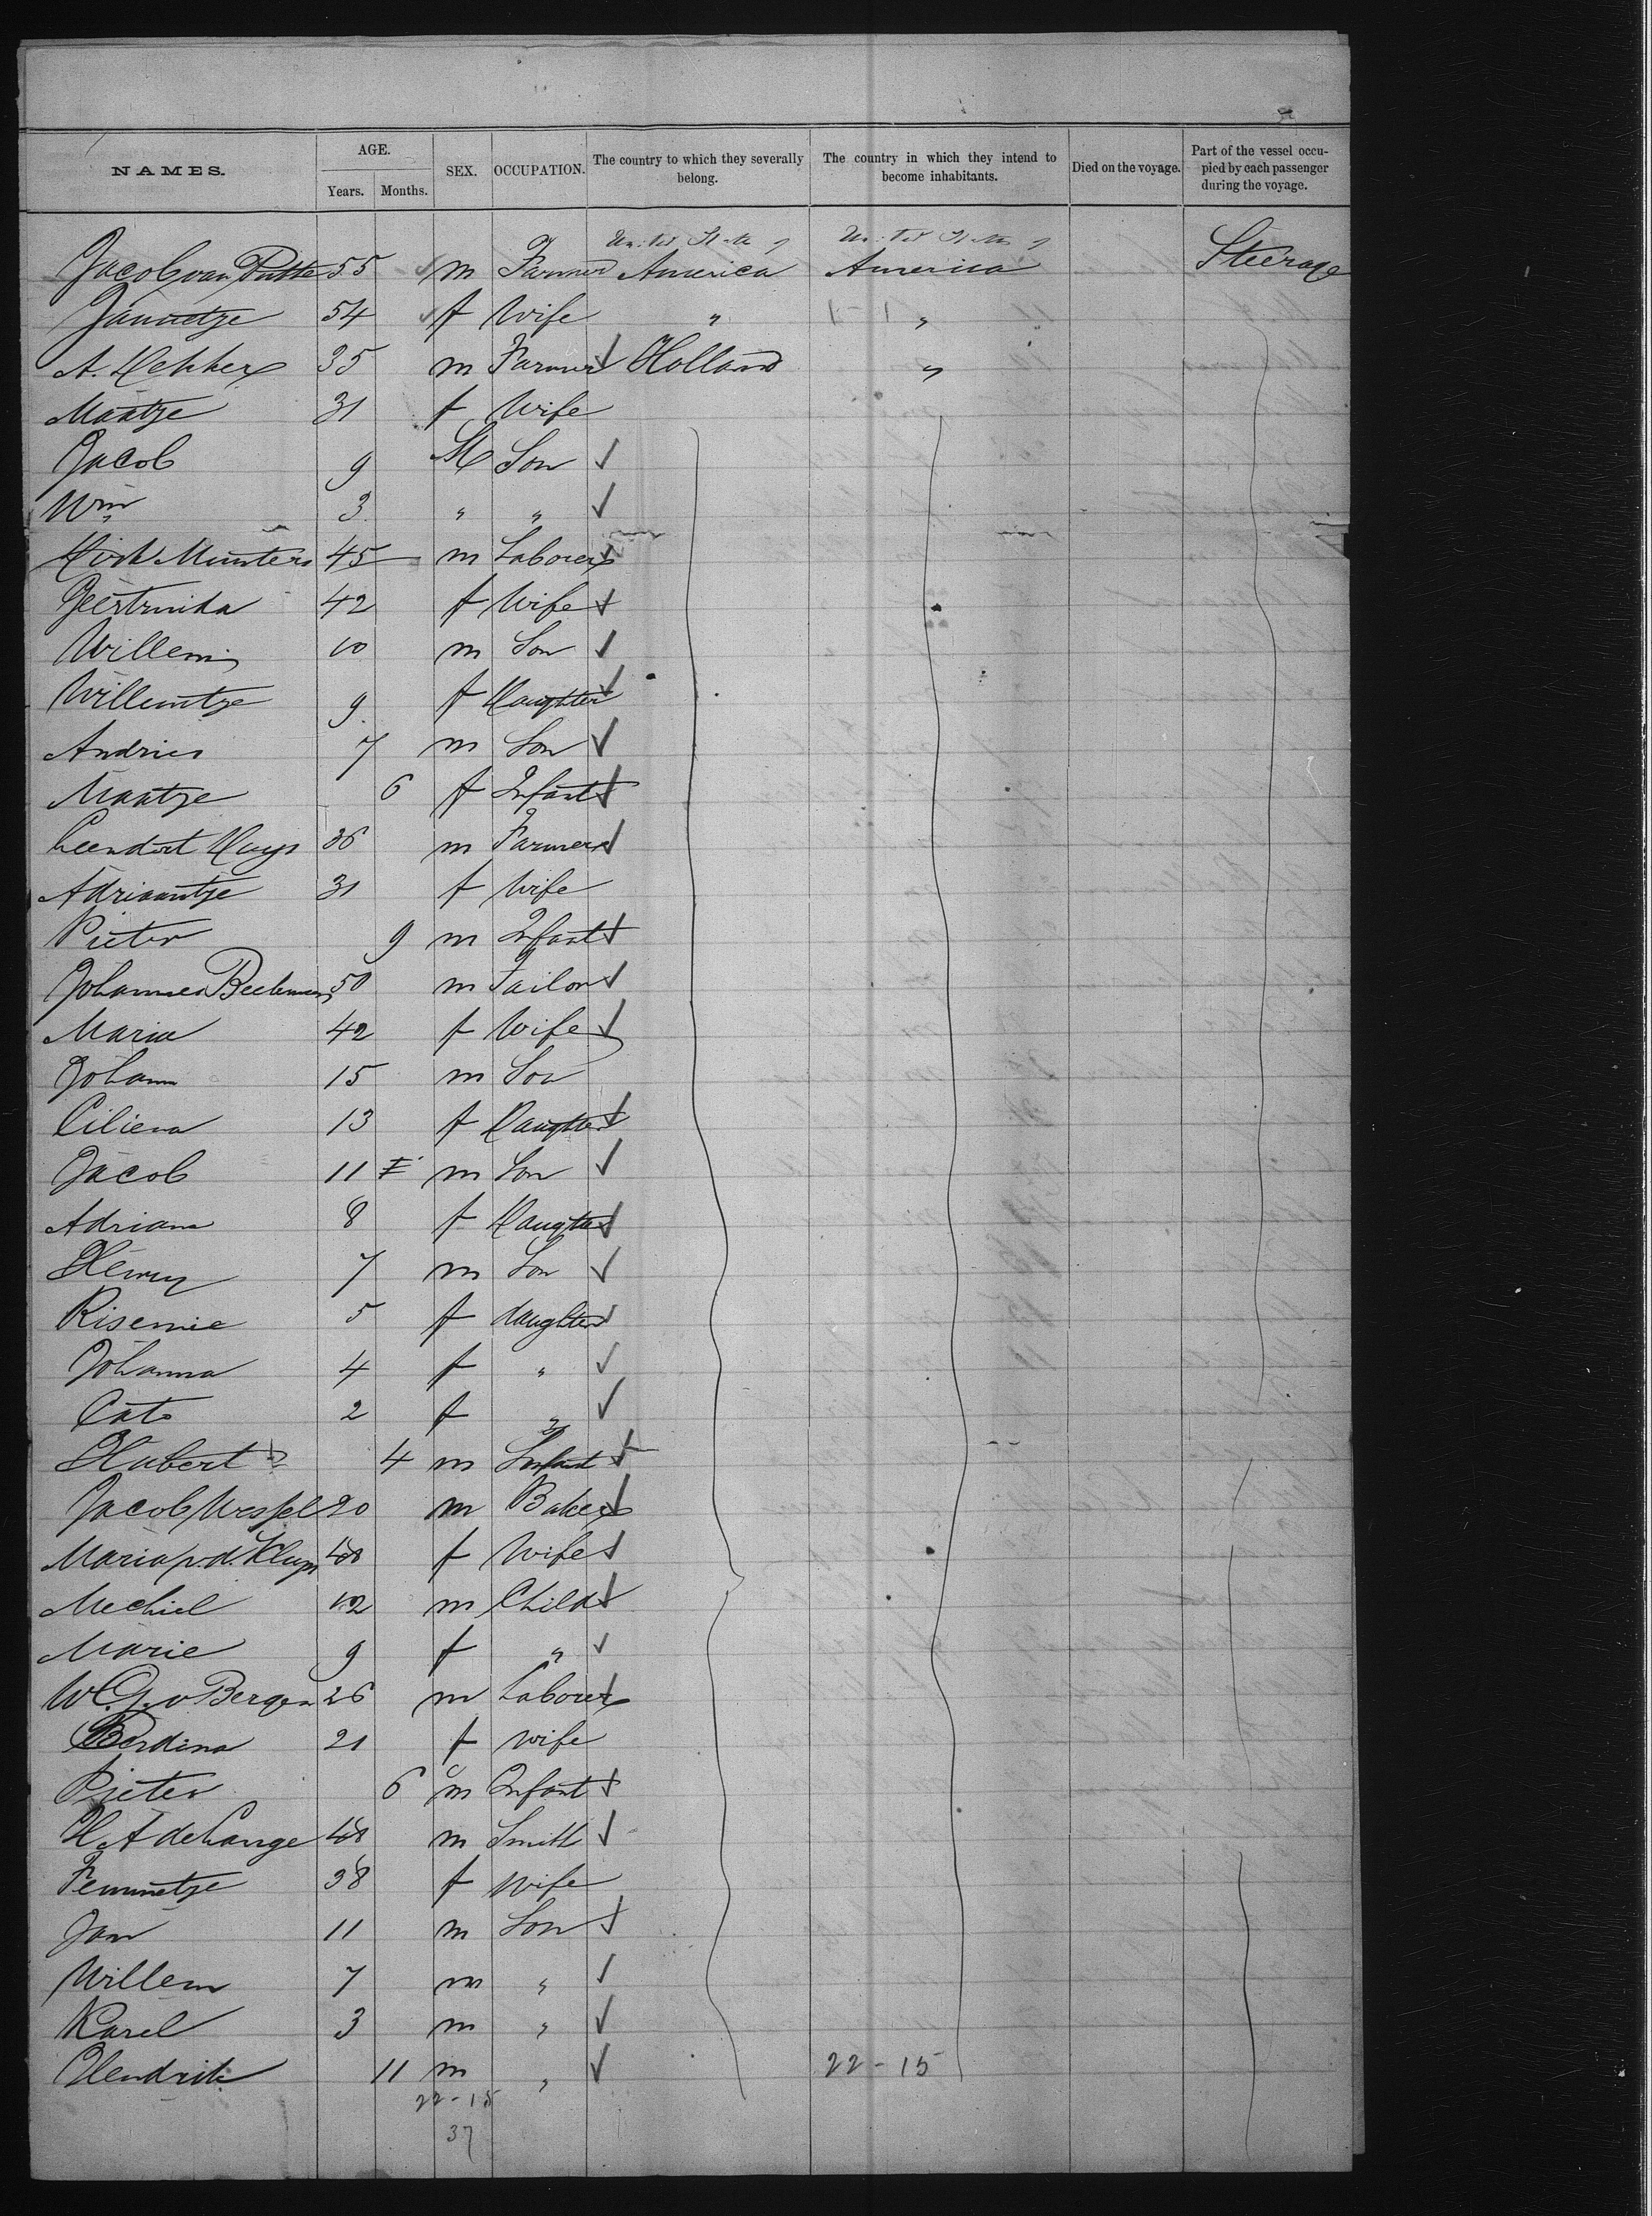 NAMES. AGE. Years. Months. SEX. OCCUPATION. The country to which they severally belong. The country in which they intend to become inhabitants. Died on the voyage. Part of the vessel occupied by each passenger during the voyage.
United States of United States of
Jacob van Putte 55 m Farmer America America Steerage
Jannetje 54 f Wife " 1 - 1 "
A. Dekker 35 m Farmer Holland "
Maatje 31 f Wife
Jacob 9 M Son
Wm 3 " "
Dirk Munters 45 m Laborer
Geertruida 42 f Wife
Willem 10 m Son
Willemtje 9 f Daughter
Andries 7 m Son
Maatje 6 f Infant
Leendert Huys 36 m Farmer
Adriaantje 31 f Wife
Pieter 9 m Infant
Johannes Beekman 50 m Tailor
Maria 42 f Wife
Johann 15 m Son
Ciliena 13 f Daughter
Jacob 11 m Son
Adriana 8 f Daughter
Henry 7 m Son
Risemie 5 f daughter
Johanna 4 f "
Cato 2 f "
Hubert 4 m Infant
Jacob Wessel 20 m Baker
Maria v. d. Kluys 48 f Wife
Mechiel 12 m Child
Marie 9 f "
W. G. v Bergen 26 m Laborer
Berdina 21 f wife
Pieter 6 m Infant
H. A de Lange 48 m Smith
Femmetje 38 f Wife
Jan 11 m Son
Willem 7 m "
Karel 3 m "
Hendrik 11 m " 22 - 15
22 - 15
37